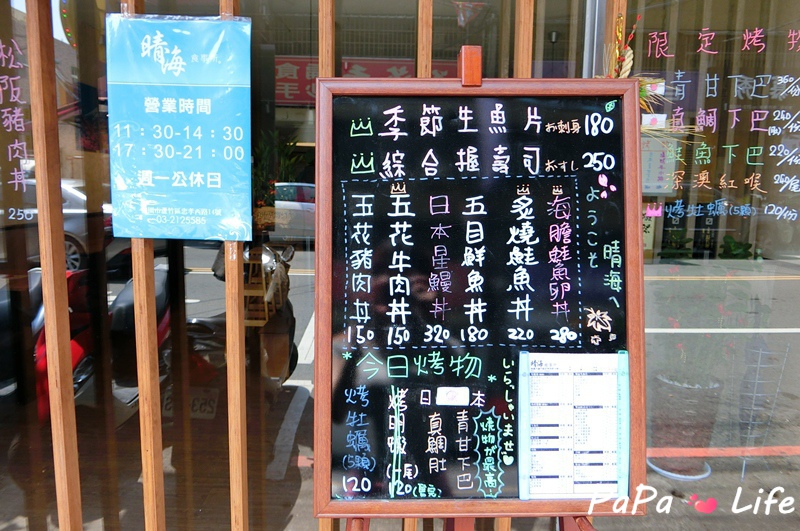 松阪豬肉丼
250
晴海
營業時間
11：30-14：30
17：30-21：00
週一公休日
03-2125585
季節生魚片 お刺身 180
綜合握壽司 おすし 250
五花豬肉丼 150
五花牛肉丼 150
日本星鰻丼 320
五目鮮魚丼 180
炙燒鮭魚丼 220
海膽鮭魚卵丼 280
ようこそ 晴海へ
*今日烤物*
いらっしゃいませ
烤牡蠣(5顆) 120
烤明蝦(一尾) 120
日本
真鯛肚
青甘下巴
焼物が最高
限定烤物
青甘下巴 360/份
真鯛下巴 260/份
鮭魚下巴 220/份
深澳紅喉
烤牡蠣(5顆) 120/份
PaPa Life